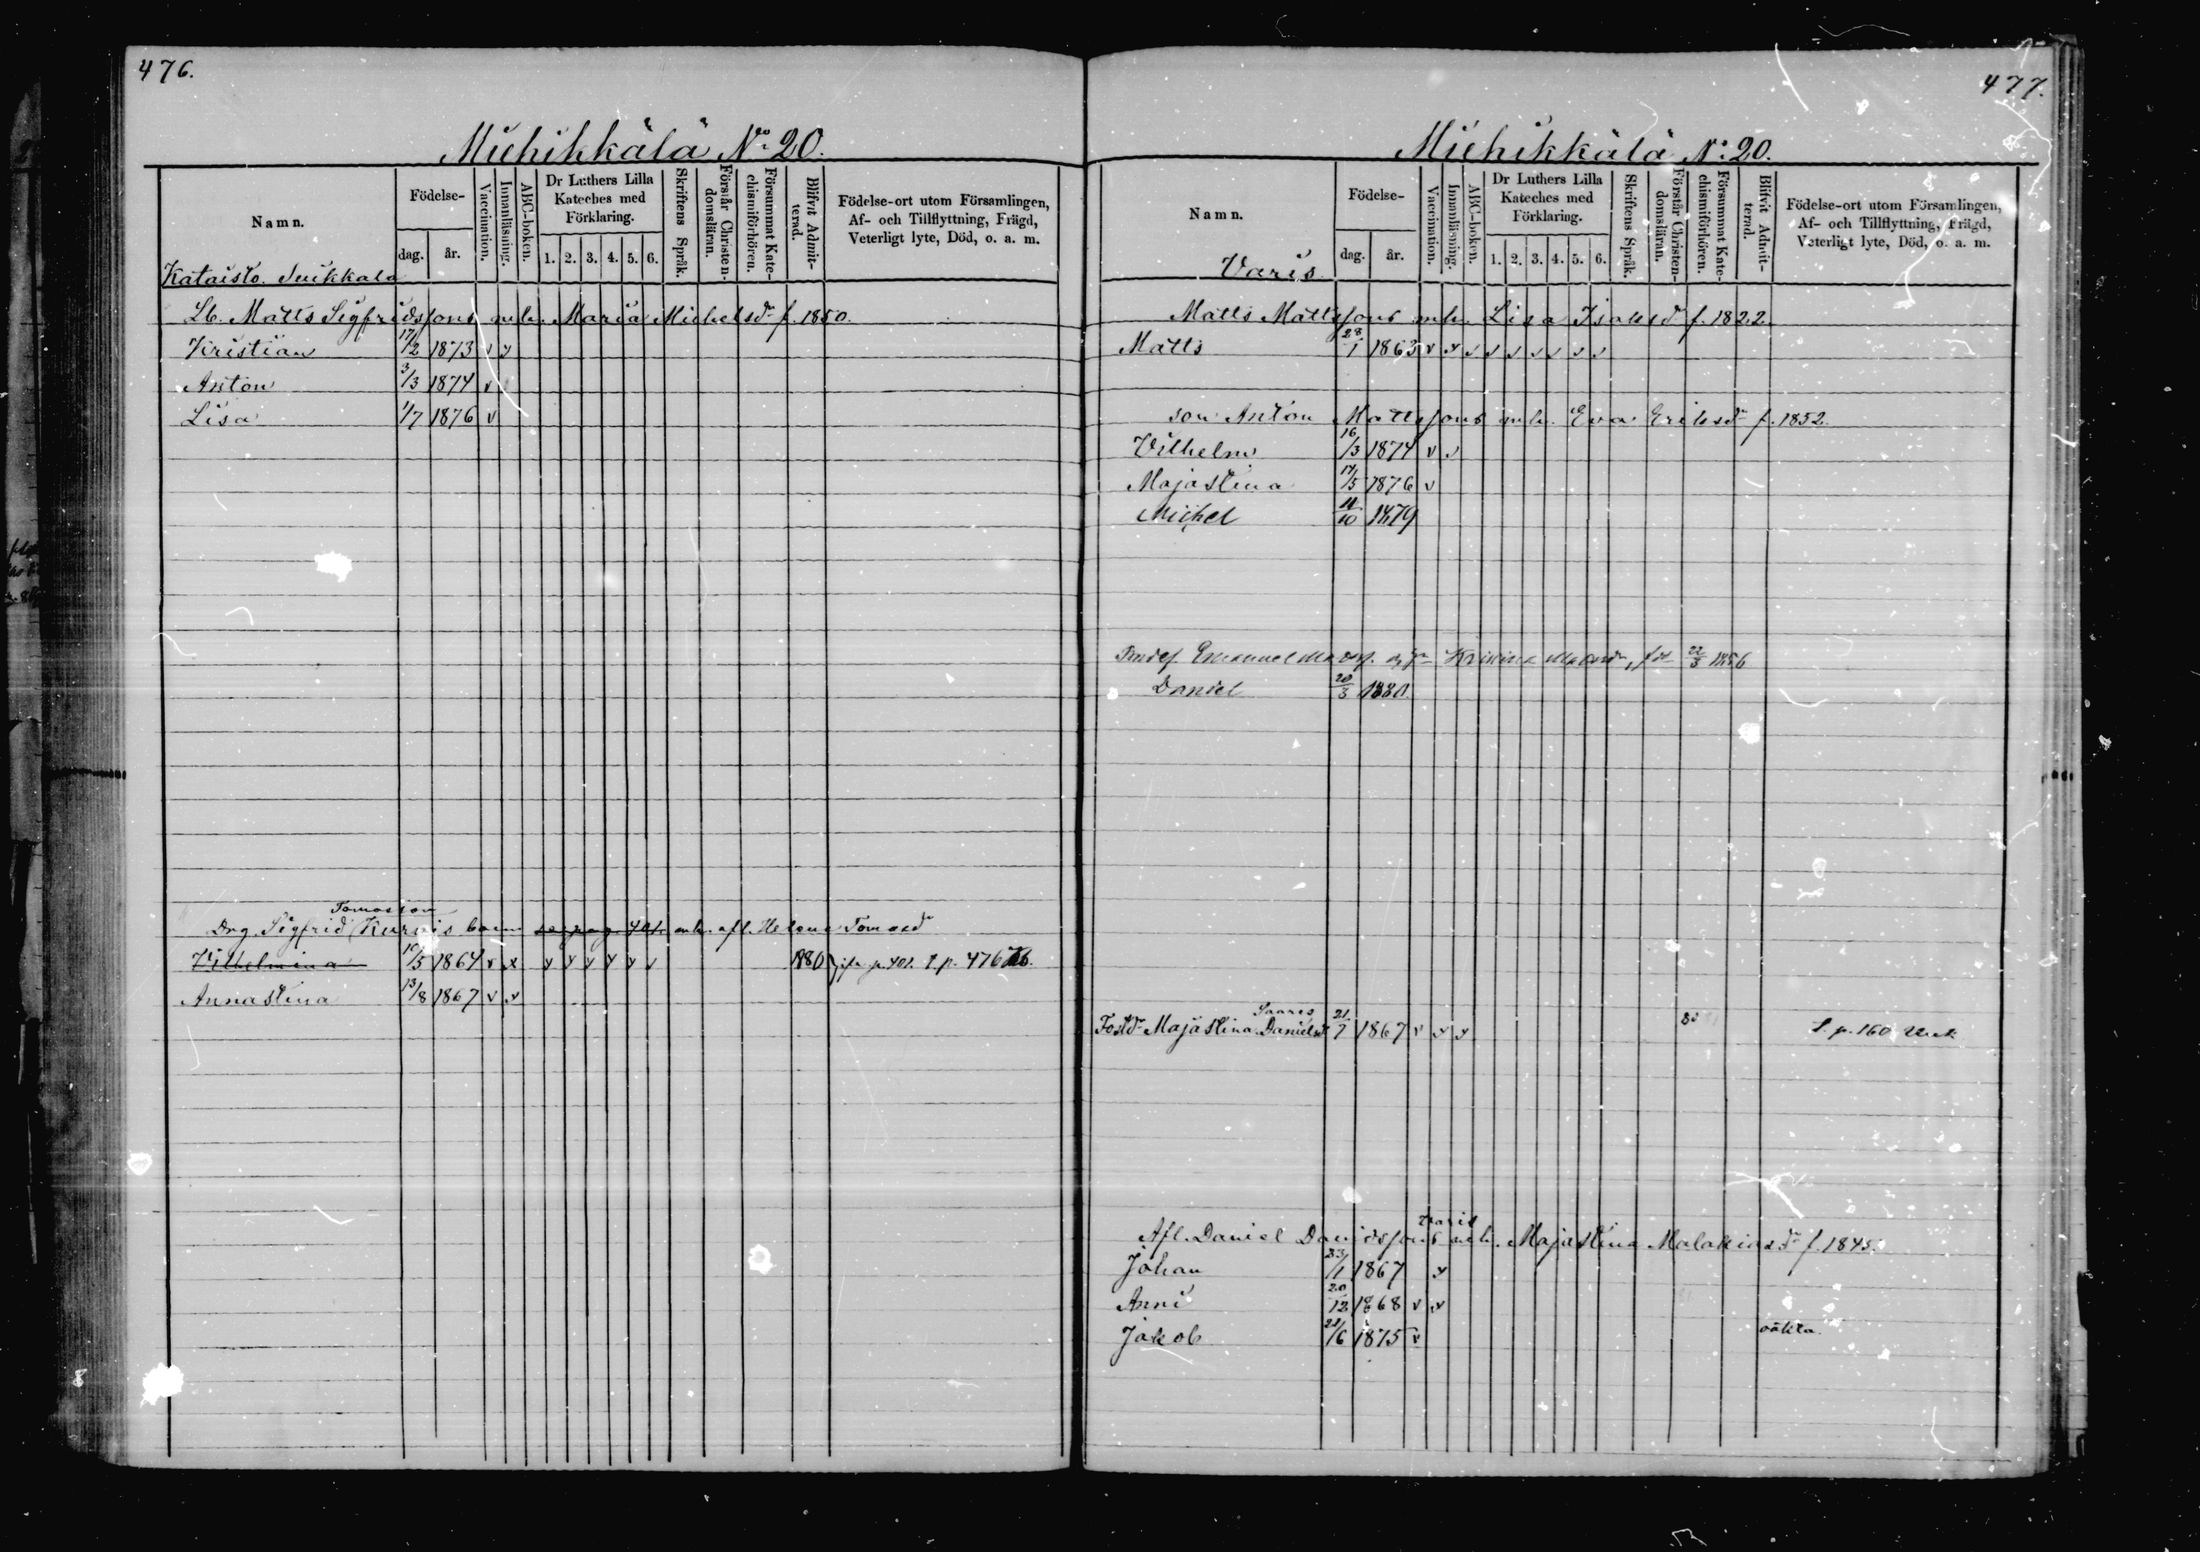 476.
Miehikkälä No 20.
Namn.
Födelse-
dag.
år.
Vaccination.
Innanläsning.
ABC-boken.
Dr Luthers Lilla Kateches med Förklaring.
1. 2. 3. 4. 5. 6.
Skriftens Språk.
Förstår Christendomsläran.
Försummat Katechismiförhören.
Blifvit Admitterad.
Födelse-ort utom Församlingen, Af- och Tillflyttning, Frägd, Veterligt lyte, Död, o. a. m.
Kataisto. Suikkala
Lb. Matts Sigfridssons m. h. Maria Michelsdr f. 1850.
Kristian 17/2 1873 v v
Anton 3/3 1874 v
Lisa 1/7 1876 v
Tomasson
Drg. Sigfrid barn se pag. 401. m. h. afl. Helena Tomasd
Vilhelmina 10/5 1864 v x v v v v v v 1880 p. 401. t. p. 476
Annastina 13/8 1867 v v
477.
Miehikkälä No 20.
Namn.
Födelse-
dag.
år.
Vaccination.
Innanläsning.
ABC-boken.
Dr Luthers Lilla Kateches med Förklaring.
1. 2. 3. 4. 5. 6.
Skriftens Språk.
Förstår Christendomsläran.
Försummat Katechismiförhören.
Blifvit Admitterad.
Födelse-ort utom Församlingen, Af- och Tillflyttning, Frägd, Veterligt lyte, Död, o. a. m.
Varis
Matts Mattssons m. h. Lisa Isaksdr f. 1822.
Matts 28/1 1863 v v v v v v v v v
son Anton Mattssons m. h. Eva Eriksdr f. 1852.
Vilhelm 16/3 1874 v v
Majastina 17/5 1876 v
Michel 11/10 1879
Emanuel 22/3 1856
Daniel 20/3 1880.
Saares
Fostdr Majastina Danielsdr 21/7 1867 v v v t. p. 160
Varis
Afl. Daniel Davidssons m. h. Majastina Malakiasdr f. 1845.
Johan 23/1 1867 v
Anni 20/12 1868 v v
Jakob 22/6 1875 v oäkta.